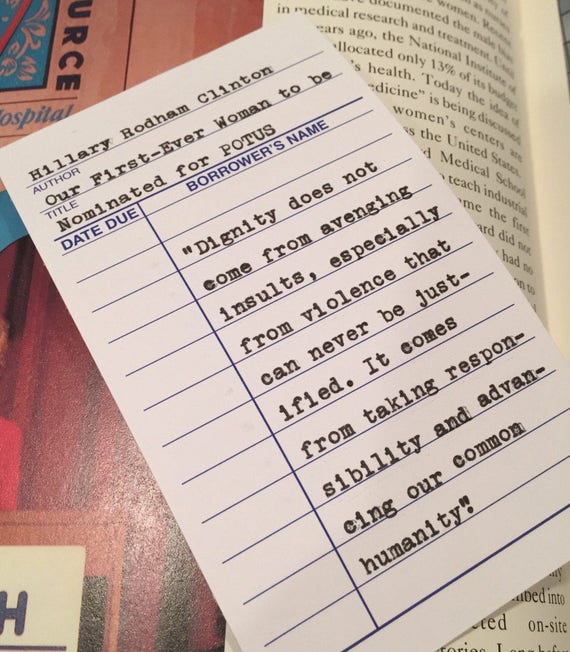 Hillary Rodham Clinton
AUTHOR
Our First-Ever Woman to be
TITLE
Nominated for POTUS
DATE DUE
BORROWER'S NAME
"Dignity does not
come from avenging
insults, especially
from violence that
can never be just-
ified. It comes
from taking respon-
sibility and advan-
cing our common
humanity".
URCE
Hospital
H
documented the male
in medical research and treatment. Until
ears ago, the National Institute of
llocated only 13% of its budget
's health. Today the idea of
edicine" is being discussed
women's centers are
ss the United States.
d Medical School
teach industrial
me the first
ard did not
had no
on to
bed into
cted on-site
tories. Long before